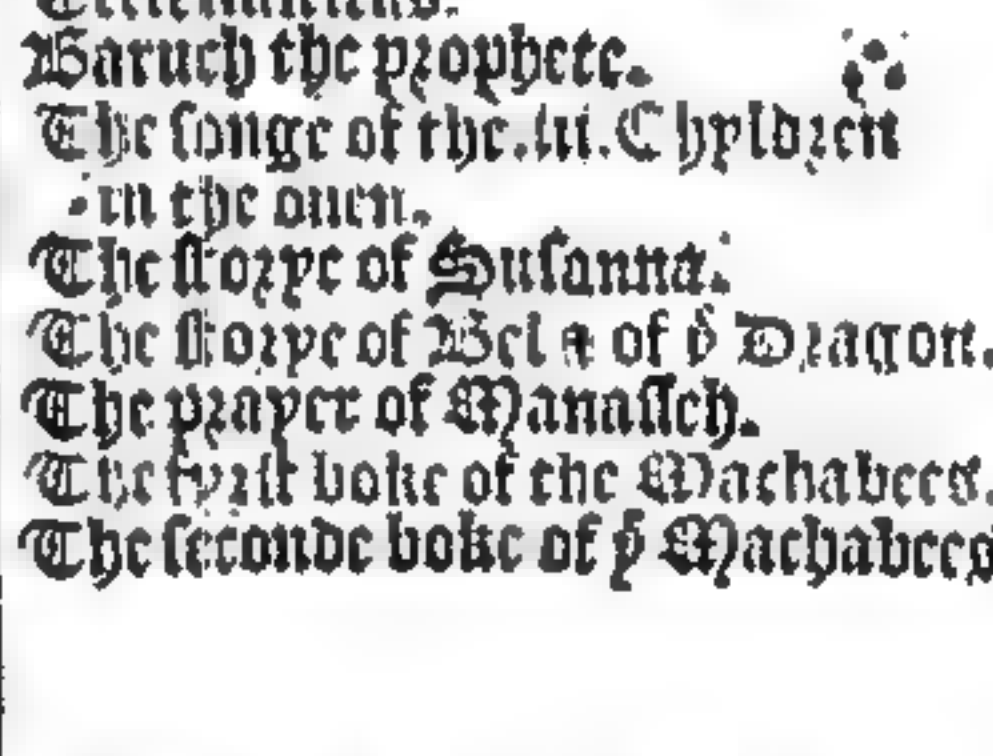 Baruch the prophete.
The songe of the.iii.Chyldren
in the ouen.
The storye of Susanna.
The storye of Bel & of yͤ Dragon.
The prayer of Manasseh.
The fyrst boke of the Machabees.
The seconde boke of yͤ Machabees